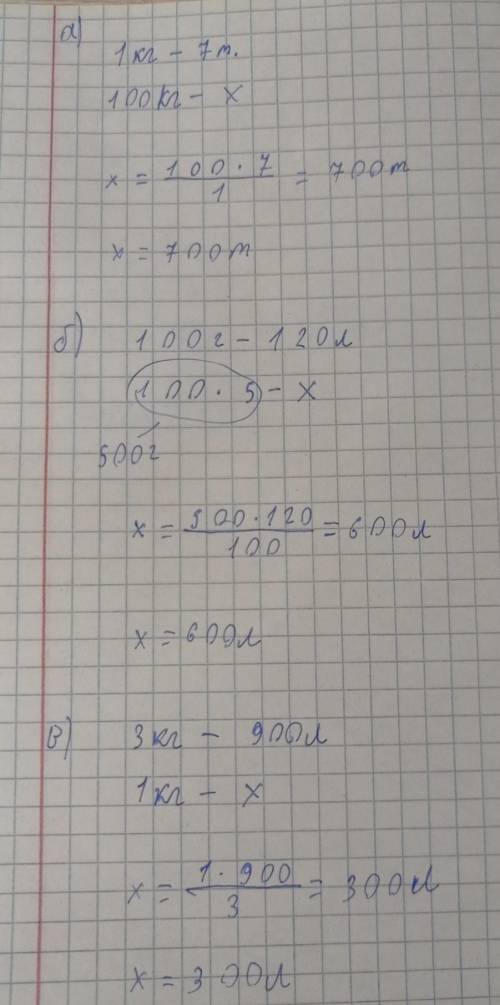 а)
1кг – 7т.
100кг – х
х = 100 · 7 / 1 = 700т
х = 700т
б) 100г – 120л
100 · 5 – х
500г
х = 500·120 / 100 = 600л
х = 600л
в) 3кг – 900л
1кг – х
х = 1 · 900 / 3 = 300л
х = 300л